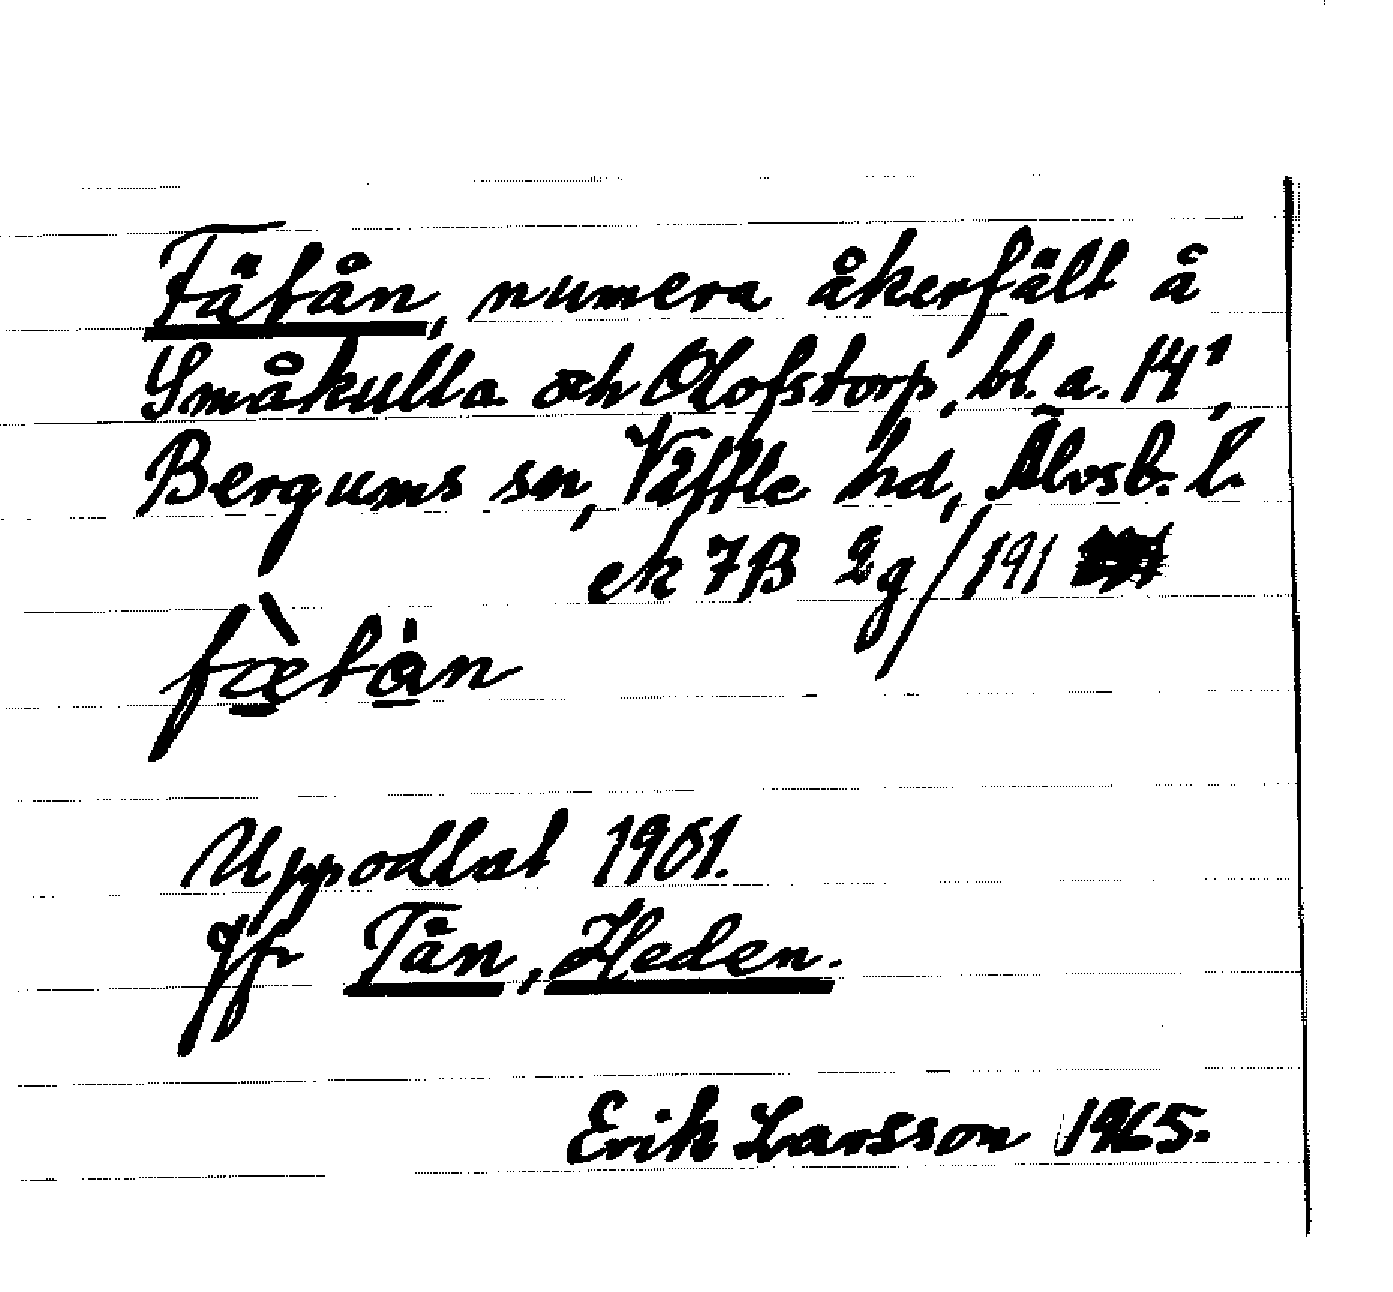 Fätån, numera åkerfält å
Småkulla och Olofstorp, bl. a. 14¹,
Bergums sn, Vättle hd, Älvsb. l.
ek 7B 2g/191
fæ̀tån
Uppodlat 1901.
Jfr Tån, Heden.
Erik Larsson 1965.